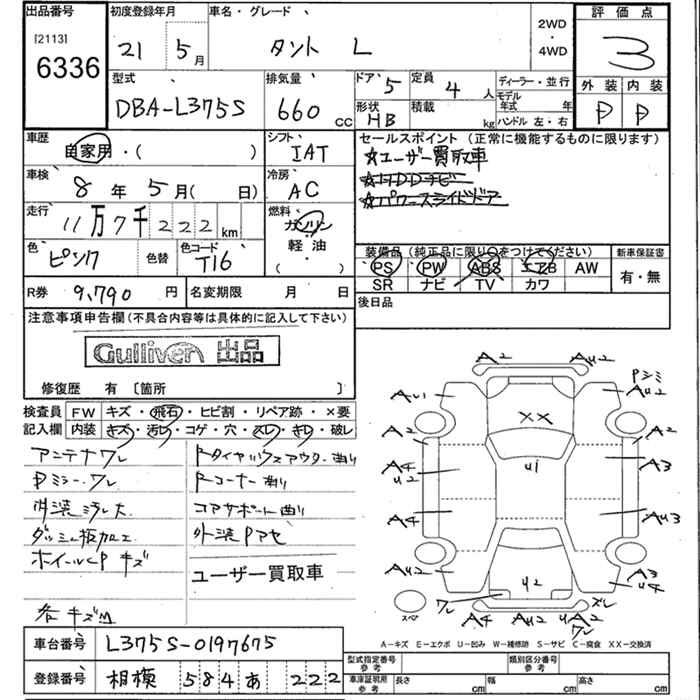 出品番号 初度登録年月 車名・グレード 評価点
[2113]
6336
21 5月 タント L
2WD
・
4WD
3
型式 排気量 ドア 5 定員 4 人 ディーラー・並行 外装 内装
DBA-L375S 660 CC
形状 HB 積載 kg
モデル年式 年
ハンドル 左・右
P P
車歴 自家用・( )
シフト IAT
セールスポイント (正常に機能するものに限ります)
☆ユーザー買取車
車検 8年 5月( 日)
冷房 AC
☆パワースライドドア
走行 11万7千222km
燃料 ガソリン
軽油
( )
色 ピンク 色替 色コード T16
装備品 (純正品に限り○をつけてください) 新車保証書
PS PW ABS エアB AW 有・無
SR ナビ TV カワ
R券 9,790円 名変期限 月 日
後日品
注意事項申告欄(不具合内容等は具体的に記入して下さい)
Gulliver 出品
修復歴 有 〔箇所 〕
検査員 FW キズ・飛石・ヒビ割・リペア跡・×要
記入欄 内装 キズ・汚レ・コゲ・穴・スレ・キレ・破レ
アンテナワレ
Pミラーワレ
ダッシュ板加工
ホイールCP キズ
各キズM
Rコーナー曲り
コアサポート曲り
外装Pアセ
ユーザー買取車
A2 AU2
Pシミ
AU2
A2 A2
XX
U1
A4
U2
A3
A4 AU3
AU2 U2 A3
U4
ワレ スレ
スペア
A4 AU2 U2A
ワレ
A-キズ E-エクボ U-凹み W-補修跡 S-サビ C-腐食 XX-交換済
車台番号 L375S-0197675
型式指定番号
参考
類別区分番号
参考
登録番号 相模 584 あ 222
車庫証明用
参考
長さ cm 幅 cm 高さ cm